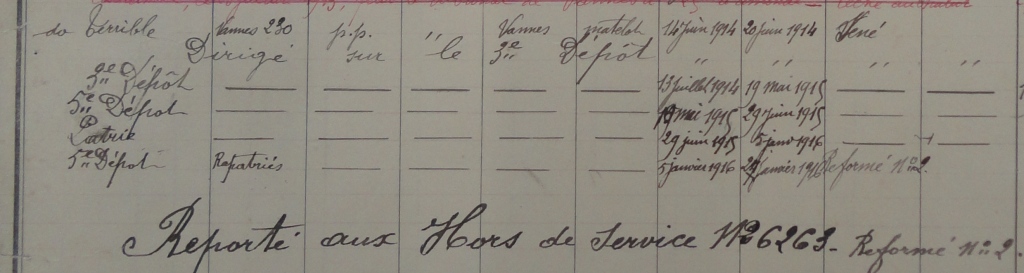 do Terrible Vannes 230 p.p. " Vannes matelot 14 juin 1914 20 juin 1914 Séné
Dirigé sur le 3e Dépôt " " " "
3e Dépôt 13 juillet 1914 19 mai 1915
5e Dépôt 19 mai 1915 29 juin 1915
Patrie 29 juin 1915 5 janv 1916
5e Dépot Rapatriés 5 janvier 1916 24 janvier 1916 Reformé No 2.
Reporté aux Hors de Service No 6263 - Reformé No 2